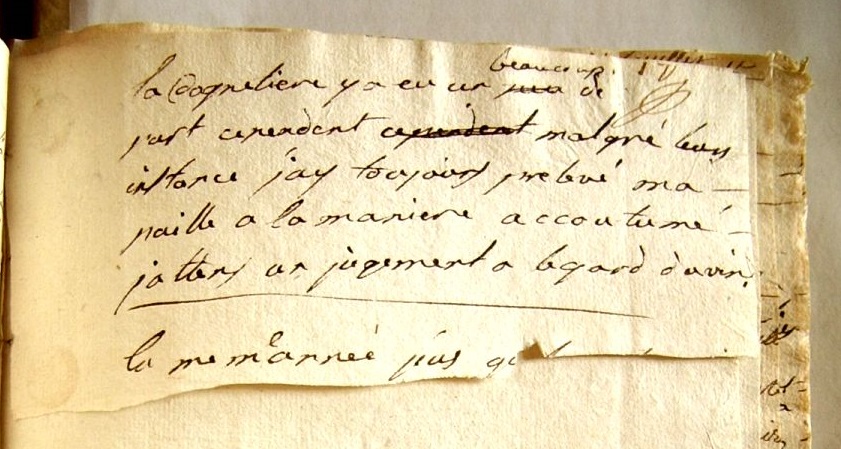 beaucoup
la Cagneliere y a eu un peu de
part cependent cependent malgré leurs
instance j'ay toujours prelevé ma
paille a la maniere accoutumé
j'attens un jugement a legard davin
la mem année jus